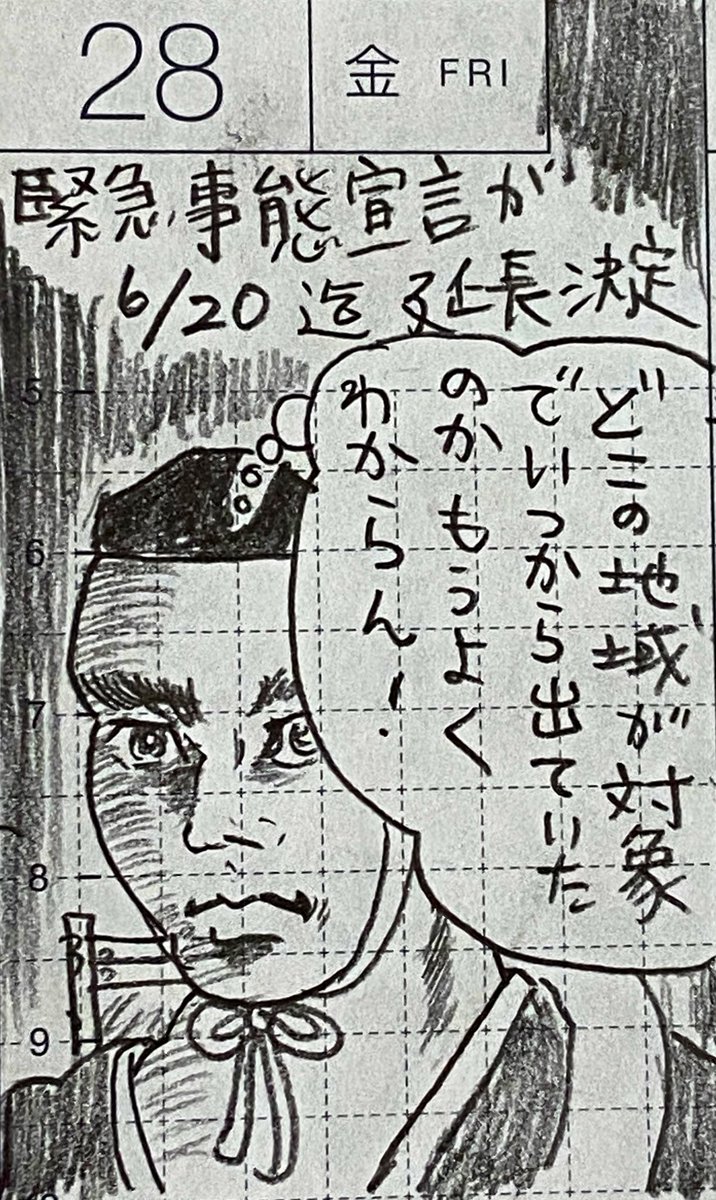 28
金 FRI
緊急事態宣言が
6/20 迄 延長決定
どこの地域が対象
でいつから出ていた
のか もうよく
わからん!
5
6
7
8
9